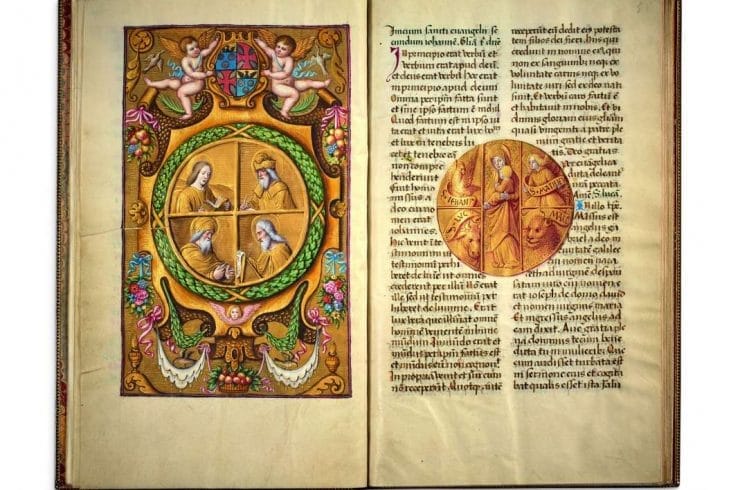 Inicium sancti euangelii se
cundum iohannē. Gl̄ia t̄ dn̄e
In principio erat verbū et
verbum erat apud deū.
et deus erat verbū hoc erat
in principio apud deum
Omnia per ip̄m facta sunt
et sine ipso factum ē nichil
Quod factum est in ipso ui
ta erat et uita erat lux hoīm
et lux in tenebris lu
cet et tenebre eā non
comprehenderunt
Fuit homo
missus a
deo cui no
men erat
iohannes.
Hic venit in
testimonium ut
testimonium perhi
beret de lumine ut omnes
crederent per illū Nō erat
ille lux sed ut testimoniū per
hiberet de lumine. Erat
lux vera que illuminat omnē
hominem uenientē in hunc
mundum In mundo erat et
mundus per ipsum factus est
et mundus eum non cognouit
In propria venit et sui eum
nō receperunt Quotquot autē
S. MATHIE
S. LUC
S. MARC
receperunt eū dedit eis potesta
tem filios dei fieri. His qui
credunt in nomine eius qui
non ex sanguinibus neqz ex
voluntate carnis neqz ex vo
luntate uiri sed ex deo nati
sunt Et verbū caro factū ē
et habitauit in nobis. Et vi
dimus gloriam eius gloriam
quasi vnigeniti a patre ple
num gratie et verita
tis. Deo gratias.
Per euangelica
dicta deleant
nr̄a peccata
Amen. S. lucā
In illo tp̄e.
Missus est
angelus ga
briel a deo in
ciuitatē galilee
cui nomen naza
reth ad virginē despon
satam uiro cui nomen e
rat ioseph de domo dauid
et nomen virginis maria
Et ingressus angelus ad
eam dixit. Aue gratia ple
na dominus tecum bene
dicta tu in mulieribus Que
cum audisset turbata est
in sermone eius et cogita
bat qualis esset ista salu